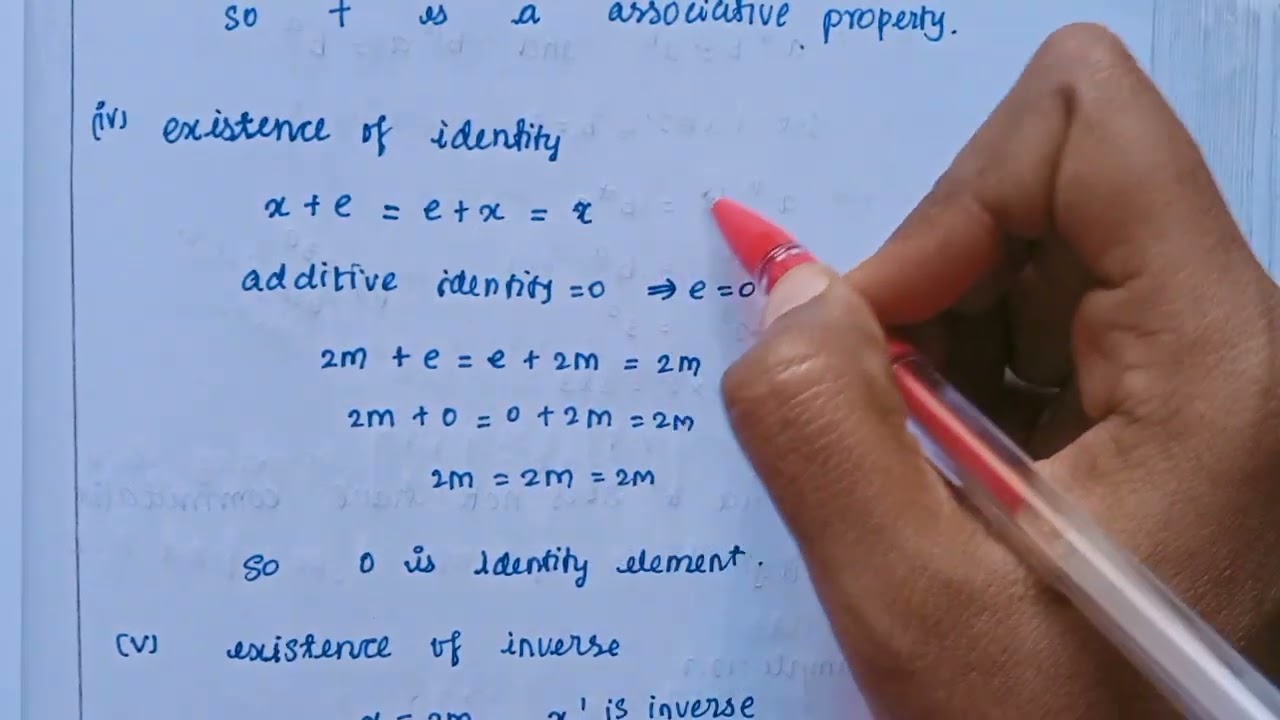 so + is a associative property.
(iv) existence of identity
x + e = e + x = x
additive identity = 0 ⇒ e = 0
2m + e = e + 2m = 2m
2m + 0 = 0 + 2m = 2m
2m = 2m = 2m
So 0 is identity element.
(v) existence of inverse
x = 2m x' is inverse